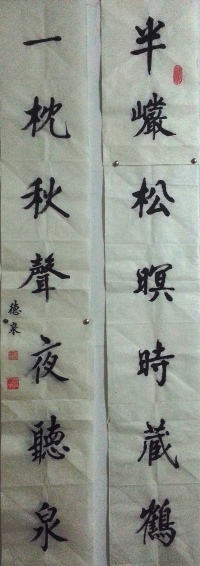 半巖松暝時藏鶴
一枕秋聲夜聽泉
德泉